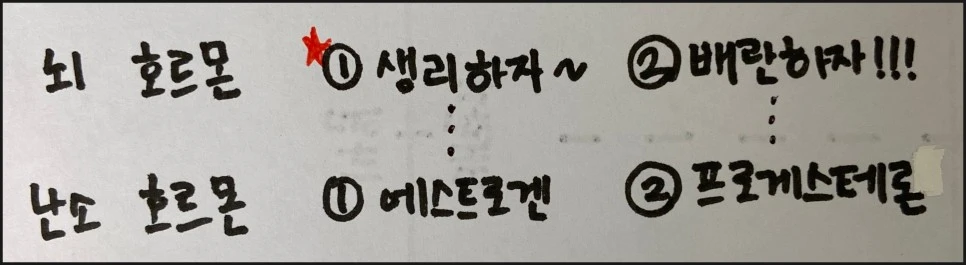 뇌 호르몬 ① 생리하자~ ② 배란하자!!!
난소 호르몬 ① 에스트로겐 ② 프로게스테론